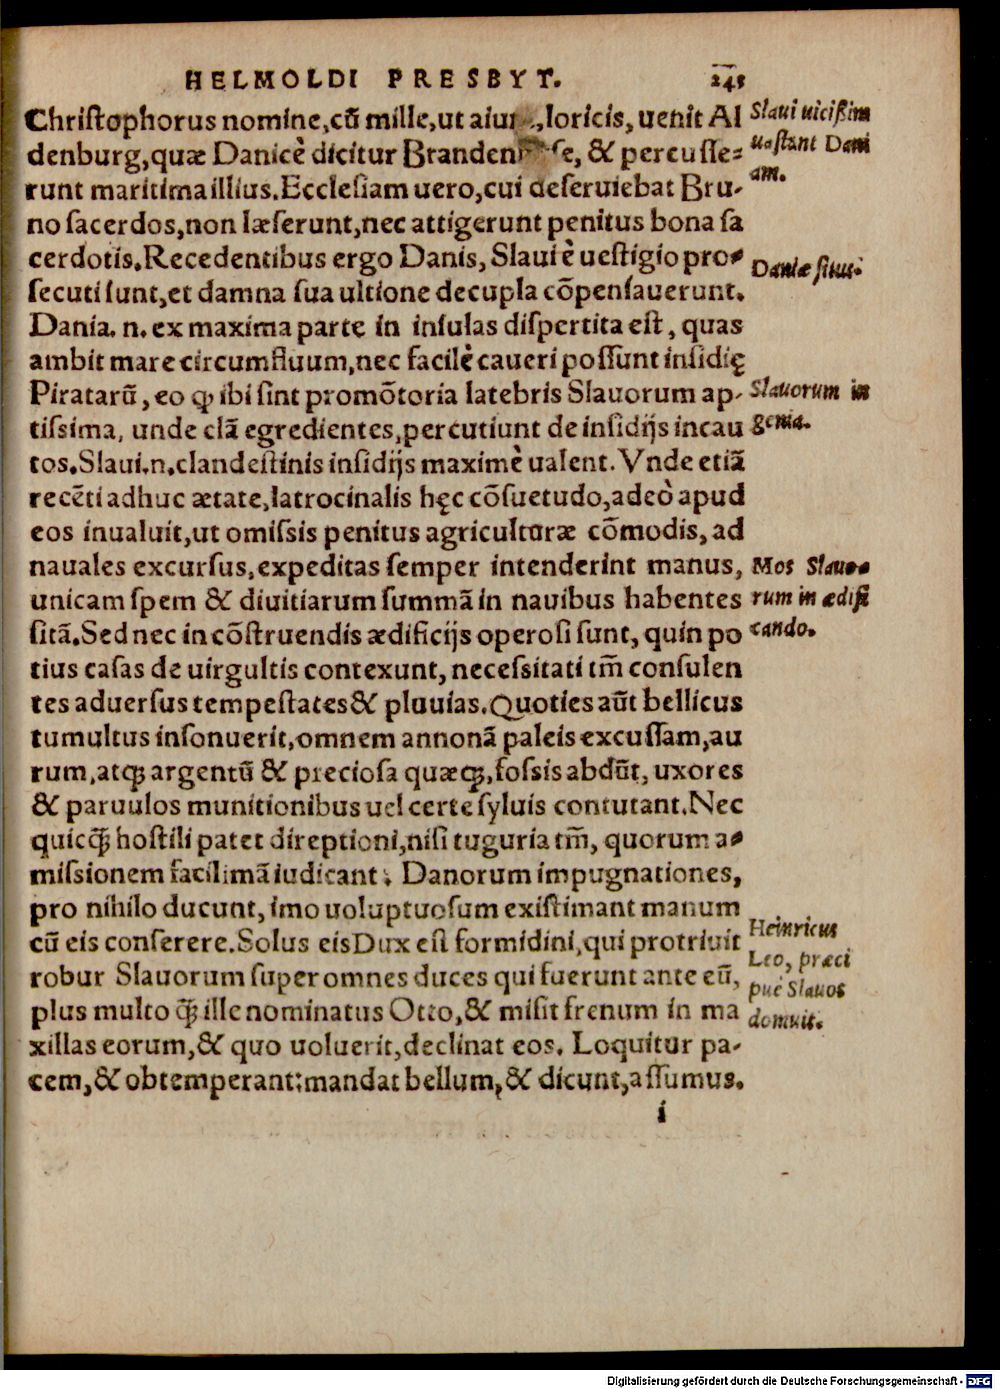 HELMOLDI PRESBYT. 245
Christophorus nomine, cū mille, ut loricis, uenit Al
denburg, quæ Danicè dicitur & percusse=
runt maritima illius. Ecclesiam uero, cui deseruiebat Bru-
no sacerdos, non læserunt, nec attigerunt penitus bona sa
cerdotis. Recedentibus ergo Danis, Slaui è uestigio pro-
secuti sunt, et damna sua ultione decupla cōpensauerunt.
Dania. n. ex maxima parte in insulas dispertita est, quas
ambit mare circumfluum, nec facilè caueri possunt insidię
Piratarū, eo ꝙ ibi sint promōtoria latebris Slauorum ap-
tissima, unde clā egredientes, percutiunt de insidijs incau
tos. Slaui. n. clandestinis insidijs maximè ualent. Vnde etiā
recēti adhuc ætate, latrocinalis hęc cōsuetudo, adeò apud
eos inualuit, ut omissis penitus agriculturæ cōmodis, ad
nauales excursus, expeditas semper intenderint manus,
unicam spem & diuitiarum summā in nauibus habentes
sitā. Sed nec in cōstruendis ædificijs operosi sunt, quin po
tius casas de uirgultis contexunt, necessitati tm̄ consulen
tes aduersus tempestates & pluuias. Quoties aūt bellicus
tumultus insonuerit, omnem annonā paleis excussam, au
rum, atqꝫ argentū & preciosa quæqꝫ, fossis abdūt, uxores
& paruulos munitionibus uel certe syluis contutant. Nec
quicq̄ꝫ hostili patet direptioni, nisi tuguria tm̄, quorum a-
missionem facilimā iudicant. Danorum impugnationes,
pro nihilo ducunt, imo uoluptuosum existimant manum
cū eis conserere. Solus eis Dux est formidini, qui protriuit
robur Slauorum super omnes duces qui fuerunt ante eū,
plus multo q̄ꝫ ille nominatus Otto, & misit frenum in ma
xillas eorum, & quo uoluerit, declinat eos. Loquitur pa-
cem, & obtemperant: mandat bellum, & dicunt, assumus.
i
Slaui uicißim
uastant Dani
am.
Daniæ situs.
Slauorum in
genia.
Mos Slauo-
rum in ædifi
cando.
Heinricus
Leo, præci
puè Slauos
domuit.
Digitalisierung gefördert durch die Deutsche Forschungsgemeinschaft - DFG